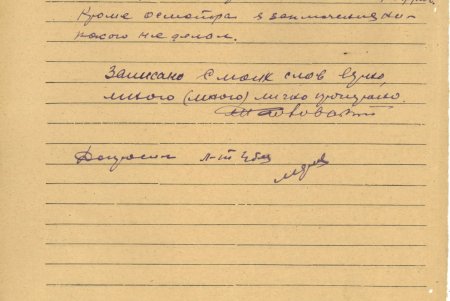 Кроме осмотра я заключения ни-
какого не делал.
Записано с моих слов верно,
мною (мною) лично прочитано.
Допросил л-т г/б